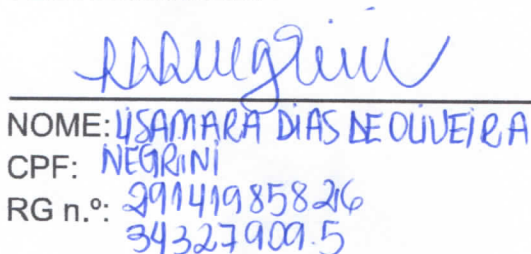 NOME: LISAMARA DIAS DE OLIVEIRA
CPF: NEGRINI
RG n.º: 29141985826
34327909.5